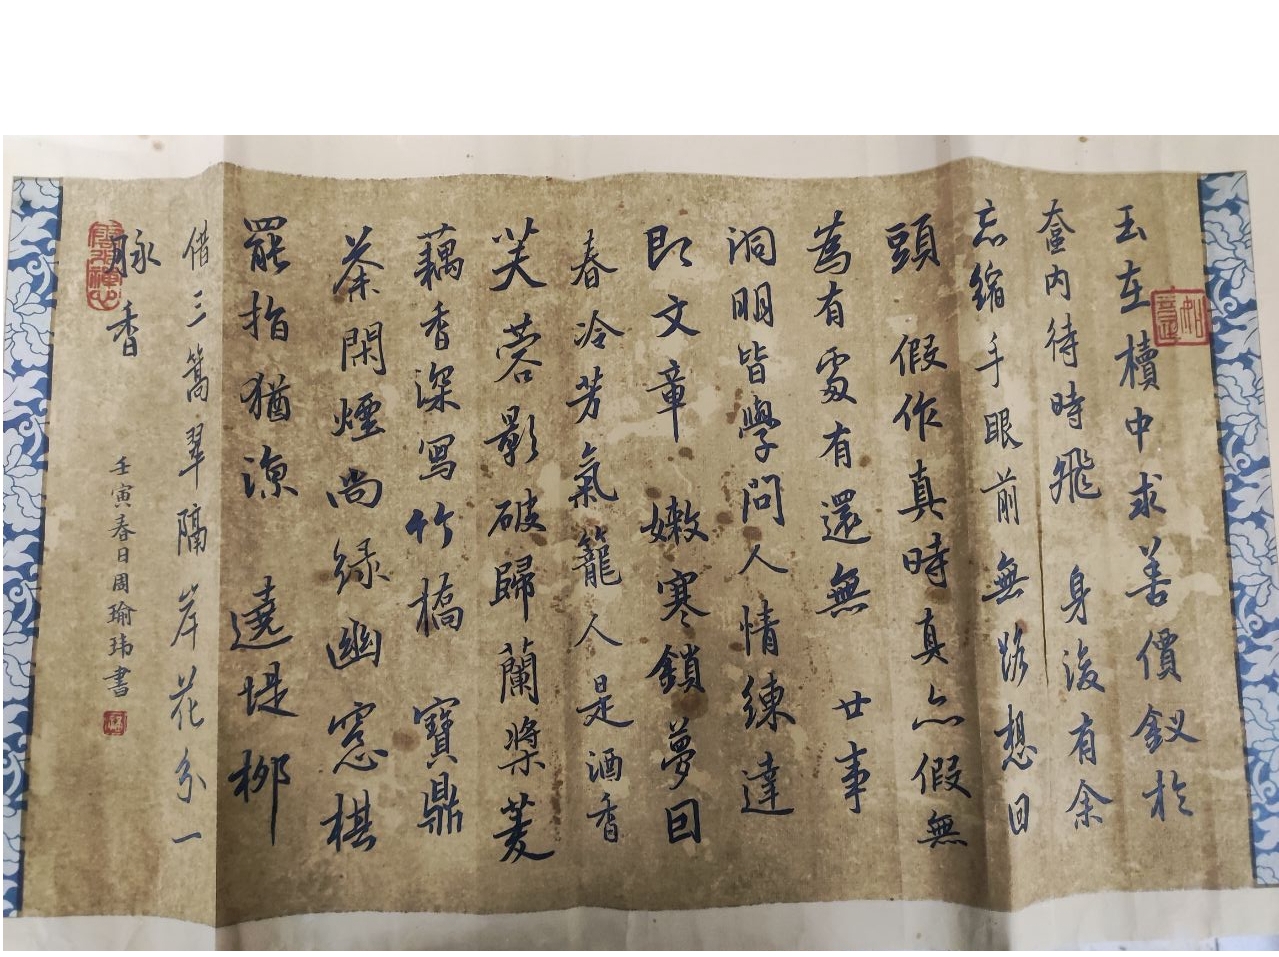 玉在櫝中求善價釵於
奩内待時飛　身後有余
忘縮手眼前無路想回
頭　假作真時真亦假無
為有處有還無　世事
洞明皆學問人情練達
即文章　嫩寒鎖夢因
春冷芳氣籠人是酒香
芙蓉影破歸蘭槳菱
藕香深寫竹橋　寶鼎
茶閑煙尚緑幽窓棋
罷指猶涼　遶堤柳
借三篙翠隔岸花分一
脉香
壬寅春日周瑜玮書
如意